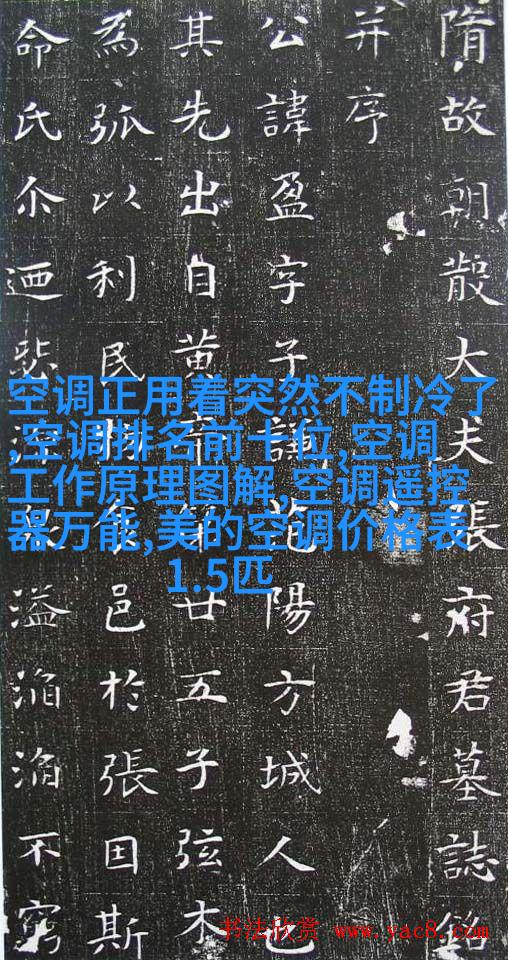 隋故朝散大夫張府君墓誌銘
并序
公諱盈字子謙范陽方城人也
其先出自黄帝第廿五子弦木
為弧以利民食邑於張因斯
命氏尒迺源溢滔滔不窮
空调正用着突然不制冷了
,空调排名前十位,空调
工作原理图解,空调遥控
器万能,美的空调价格表
1.5匹
书法欣赏 www.yac8.com